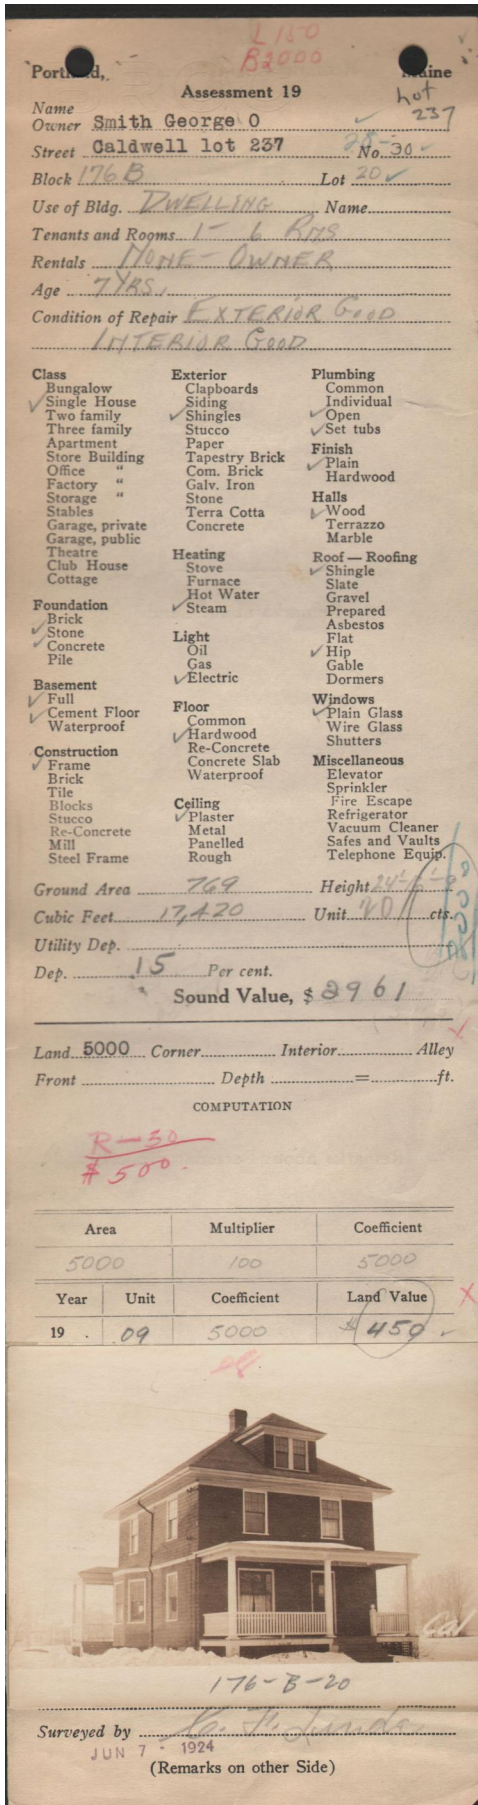 L 150
B 2000
Portland, Maine
Assessment 19
Lot
237
Name
Owner Smith George O
Street Caldwell lot 237 28- No. 30
Block 176 B Lot 20
Use of Bldg. DWELLING Name
Tenants and Rooms 1- 6 RMS
Rentals NONE - OWNER
Age 7 YRS.
Condition of Repair EXTERIOR GOOD
INTERIOR GOOD
Class
Bungalow
✓ Single House
Two family
Three family
Apartment
Store Building
Office "
Factory "
Storage "
Stables
Garage, private
Garage, public
Theatre
Club House
Cottage
Foundation
Brick
✓ Stone
✓ Concrete
Pile
Basement
✓ Full
✓ Cement Floor
Waterproof
Construction
✓ Frame
Brick
Tile
Blocks
Stucco
Re-Concrete
Mill
Steel Frame
Exterior
Clapboards
Siding
✓ Shingles
Stucco
Paper
Tapestry Brick
Com. Brick
Galv. Iron
Stone
Terra Cotta
Concrete
Heating
Stove
Furnace
Hot Water
✓ Steam
Light
Oil
Gas
✓ Electric
Floor
Common
✓ Hardwood
Re-Concrete
Concrete Slab
Waterproof
Ceiling
✓ Plaster
Metal
Panelled
Rough
Plumbing
Common
Individual
✓ Open
✓ Set tubs
Finish
✓ Plain
Hardwood
Halls
✓ Wood
Terrazzo
Marble
Roof — Roofing
✓ Shingle
Slate
Gravel
Prepared
Asbestos
Flat
✓ Hip
Gable
Dormers
Windows
✓ Plain Glass
Wire Glass
Shutters
Miscellaneous
Elevator
Sprinkler
Fire Escape
Refrigerator
Vacuum Cleaner
Safes and Vaults
Telephone Equip.
Ground Area 769 Height
Cubic Feet 17,420 Unit 20 cts.
Utility Dep.
Dep. 15 Per cent.
Sound Value, $ 2961
Land 5000 Corner Interior Alley
Front Depth = ft.
COMPUTATION
R-50
$500.
Area Multiplier Coefficient
5000 100 5000
Year Unit Coefficient Land Value
19 . 09 5000 $ 450
Cal
176-B-20
Surveyed by
JUN 7 - 1924
(Remarks on other Side)